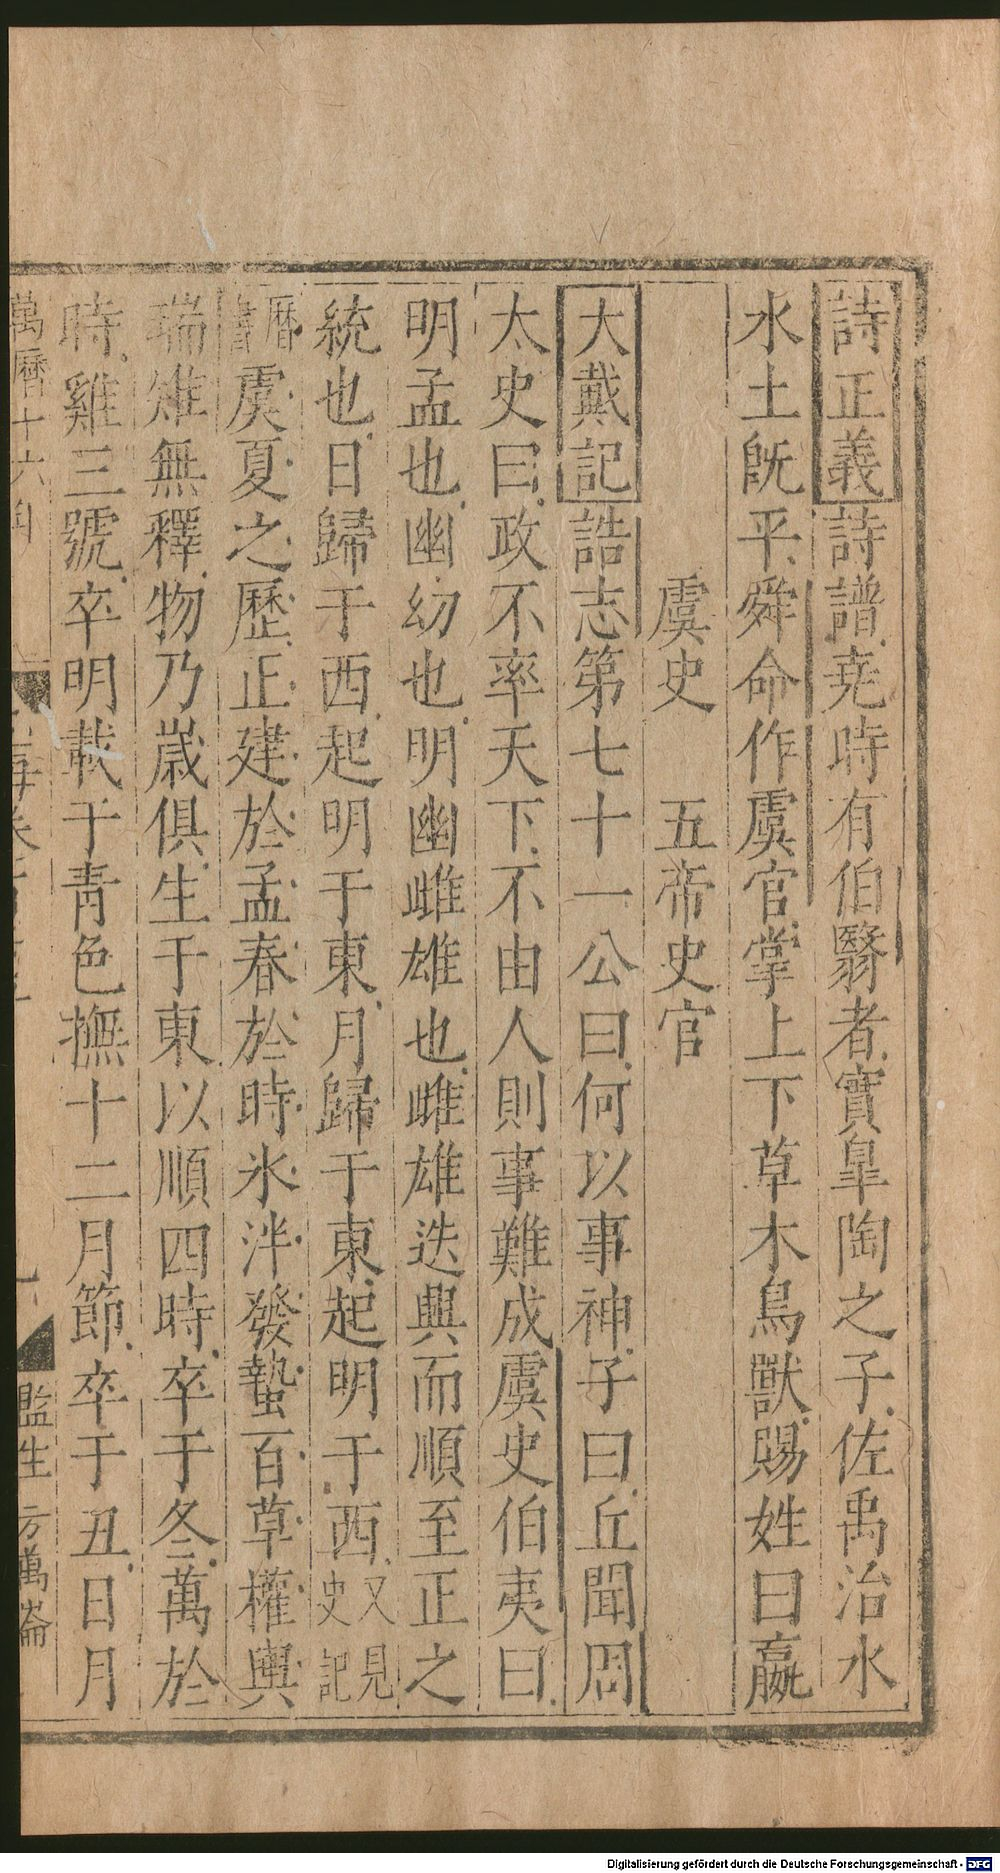 詩正義詩譜堯時有伯翳者實皐陶之子佐禹治水
水土旣平舜命作虞官掌上下草木鳥獸賜姓曰嬴
虞史　五帝史官
大戴記誥志第七十一公曰何以事神子曰丘聞周
太史曰政不率天下不由人則事難成虞史伯夷曰
明孟也幽幼也明幽雌雄也雌雄迭興而順至正之
統也日歸于西起明于東月歸于東起明于西又見史記
曆書虞夏之歷正建於孟春於時氷泮發蟄百草權輿
瑞雉無釋物乃歲俱生于東以順四時卒于冬萬於
時雞三號卒明載于靑色撫十二月節卒于丑日月
萬曆十六年
海卷
監生方萬崙
Digitalisierung gefördert durch die Deutsche Forschungsgemeinschaft - DFG